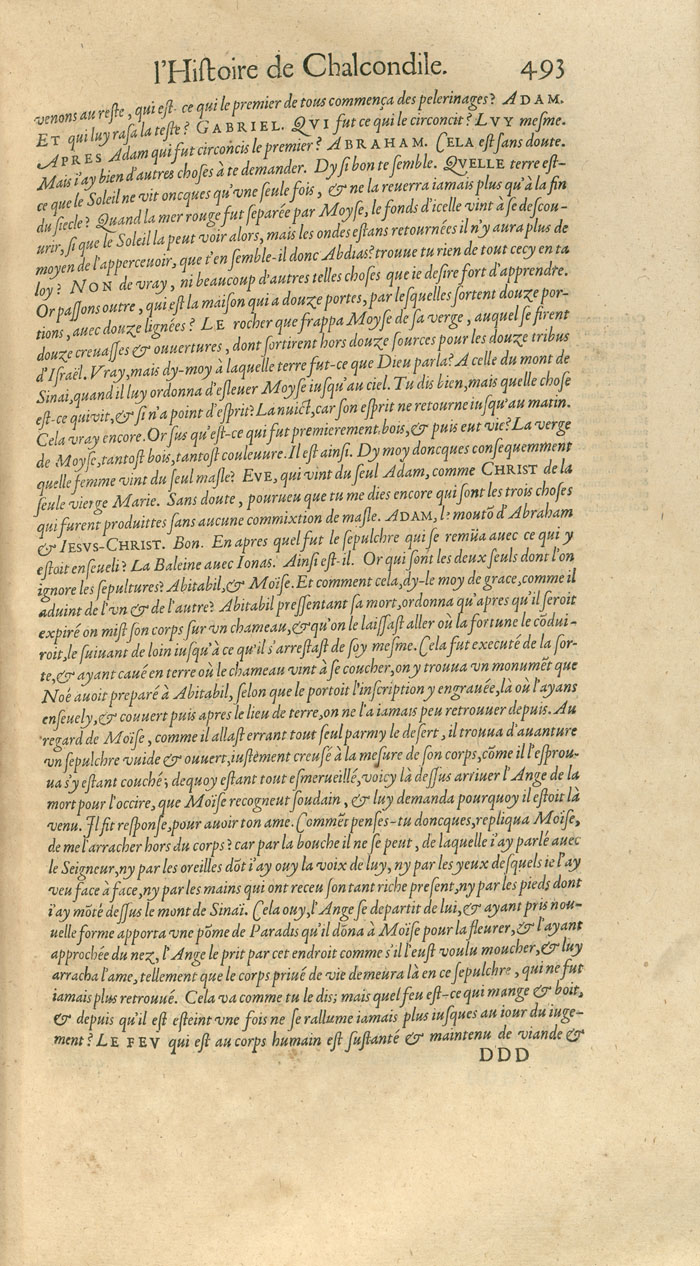 l'Hiſtoire de Chalcondile. 493
venons au reſte, qui eſt-ce qui le premier de tous commença des pelerinages? ADAM.
ET qui luy raſa la teſte? GABRIEL. QVI fut ce qui le circoncit? LVY meſme.
APRES Adam qui fut circoncis le premier? ABRAHAM. CELA eſt ſans doute.
Mais i'ay bien d'autres choſes à te demander. Dy ſi bon te ſemble. QVELLE terre eſt-
ce que le Soleil ne vit oncques qu'vne ſeule fois, & ne la reuerra iamais plus qu'à la fin
du ſiecle? Quand la mer rouge fut ſeparée par Moyſe, le fonds d'icelle vint à ſe deſcou-
urir, ſi que le Soleil la peut voir alors, mais les ondes eſtans retournées il n'y aura plus de
moyen de l'apperceuoir, que t'en ſemble-il donc Abdias? trouue tu rien de tout cecy en ta
loy? NON de vray, ni beaucoup d'autres telles choſes que ie deſire fort d'apprendre.
Or paſſons outre, qui eſt la maiſon qui a douze portes, par leſquelles ſortent douze por-
tions, auec douze lignées? LE rocher que frappa Moyſe de ſa verge, auquel ſe firent
douze creuaſſes & ouuertures, dont ſortirent hors douze ſources pour les douze tribus
d'Iſraël. Vray, mais dy-moy à laquelle terre fut-ce que Dieu parla? A celle du mont de
Sinai, quand il luy ordonna d'eſleuer Moyſe iuſqu'au ciel. Tu dis bien, mais quelle choſe
eſt-ce qui vit, & ſi n'a point d'eſprit? La nuict, car ſon eſprit ne retourne iuſqu'au matin.
Cela vray encore. Or ſus qu'eſt-ce qui fut premierement bois, & puis eut vie? La verge
de Moyſe, tantoſt bois, tantoſt couleuure. Il eſt ainſi. Dy moy doncques conſequemment
quelle femme vint du ſeul maſle? EVE, qui vint du ſeul Adam, comme CHRIST de la
ſeule vierge Marie. Sans doute, pourueu que tu me dies encore qui ſont les trois choſes
qui furent produittes ſans aucune commixtion de maſle. ADAM, le moutõ d'Abraham
& IESVS-CHRIST. Bon. En apres quel fut le ſepulchre qui ſe remüa auec ce qui y
eſtoit enſeueli? La Baleine auec Ionas. Ainſi eſt-il. Or qui ſont les deux ſeuls dont l'on
ignore les ſepultures? Abitabil, & Moïſe. Et comment cela, dy-le moy de grace, comme il
aduint de l'vn & de l'autre? Abitabil preſſentant ſa mort, ordonna qu'apres qu'il ſeroit
expiré on miſt ſon corps ſur vn chameau, & qu'on le laiſſaſt aller où la fortune le cõdui-
roit, le ſuiuant de loin iuſqu'à ce qu'il s'arreſtaſt de ſoy meſme. Cela fut executé de la ſor-
te, & ayant caué en terre où le chameau vint à ſe coucher, on y trouua vn monumẽt que
Noé auoit preparé à Abitabil, ſelon que le portoit l'inſcription y engrauée, là où l'ayans
enſeuely, & couuert puis apres le lieu de terre, on ne l'a iamais peu retrouuer depuis. Au
regard de Moïſe, comme il allaſt errant tout ſeul parmy le deſert, il trouua d'auanture
vn ſepulchre vuide & ouuert, iuſtèment creuſé à la meſure de ſon corps, cõme il l'eſprou-
ua s'y eſtant couché; dequoy eſtant tout eſmerueillé, voicy là deſſus arriuer l'Ange de la
mort pour l'occire, que Moïſe recogneut ſoudain, & luy demanda pourquoy il eſtoit là
venu. Il fit reſponſe, pour auoir ton ame. Commẽt penſes-tu doncques, repliqua Moïſe,
de me l'arracher hors du corps? car par la bouche il ne ſe peut, de laquelle i'ay parlé auec
le Seigneur, ny par les oreilles dõt i'ay ouy la voix de luy, ny par les yeux deſquels ie l'ay
veu face à face, ny par les mains qui ont receu ſon tant riche preſent, ny par les pieds dont
i'ay mõté deſſus le mont de Sinaï. Cela ouy, l'Ange ſe departit de lui, & ayant pris nou-
uelle forme apporta vne põme de Paradis qu'il dõna à Moïſe pour la fleurer, & l'ayant
approchée du nez, l'Ange le prit par cet endroit comme s'il l'euſt voulu moucher, & luy
arracha l'ame, tellement que le corps priué de vie demeura là en ce ſepulchre, qui ne fut
iamais plus retrouué. Cela va comme tu le dis; mais quel feu eſt-ce qui mange & boit,
& depuis qu'il eſt eſteint vne fois ne ſe rallume iamais plus iuſques au iour du iuge-
ment? LE FEV qui eſt au corps humain eſt ſuſtanté & maintenu de viande &
DDD